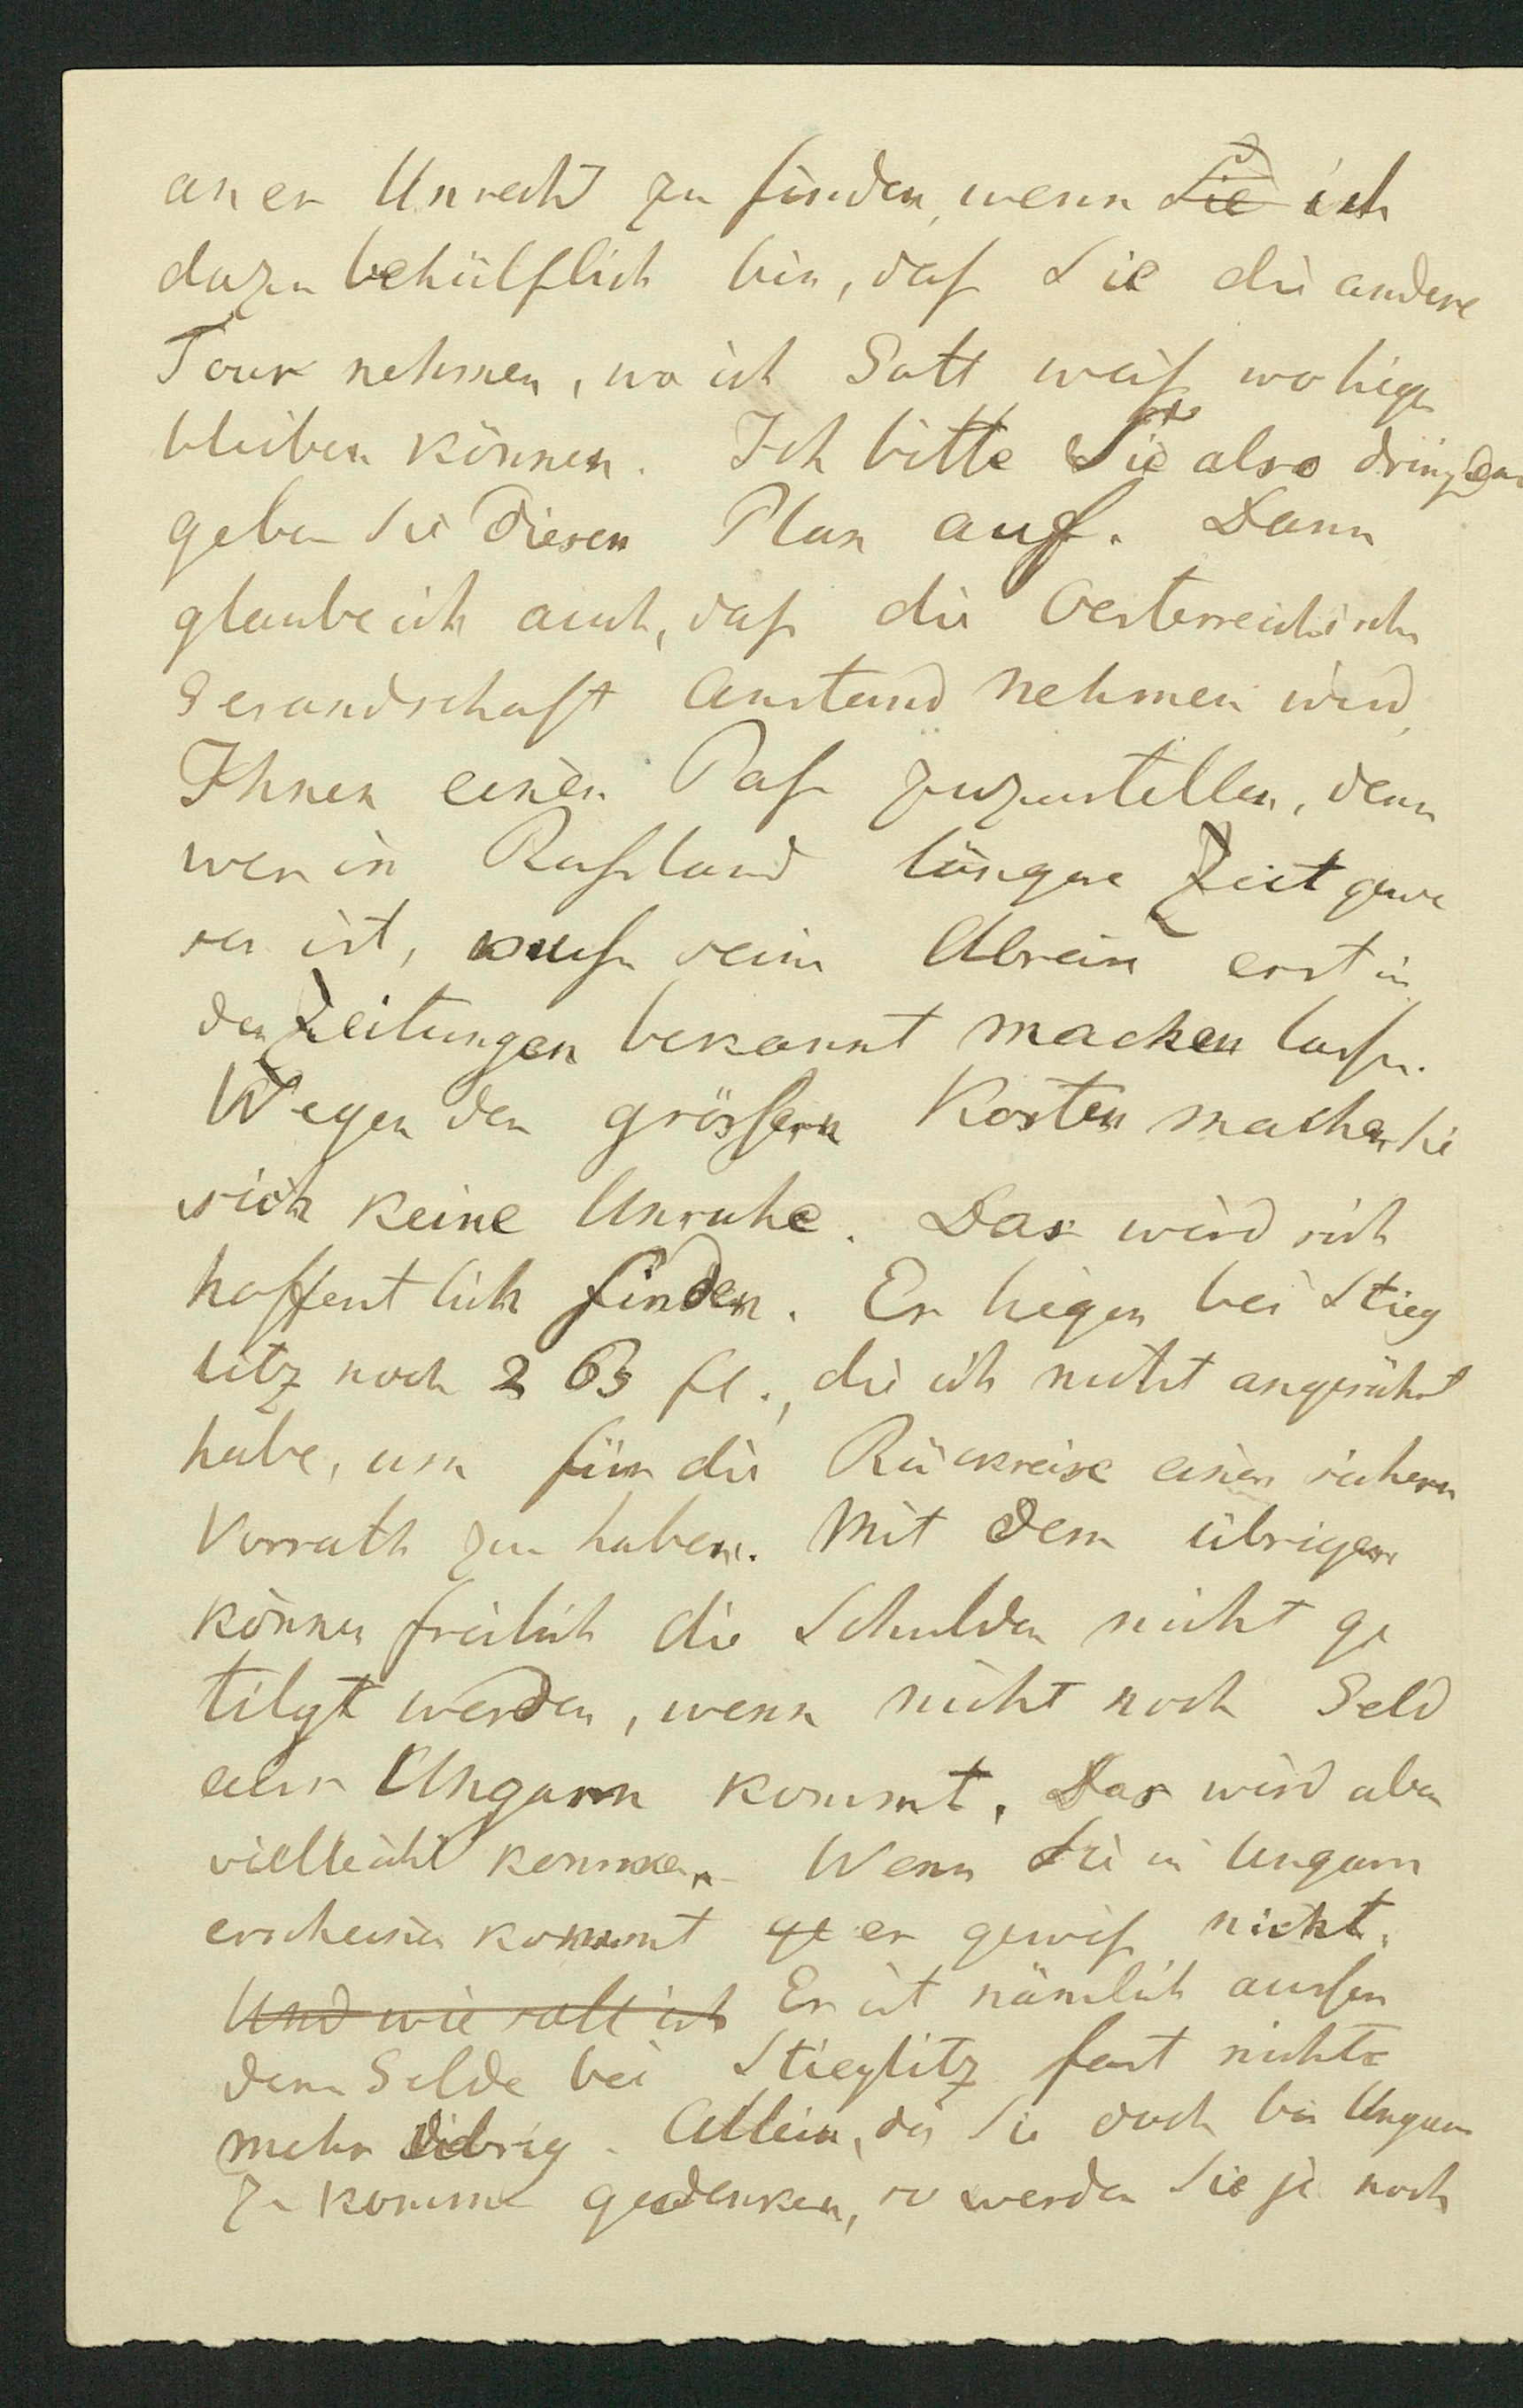 an er Unrecht zu finden, wenn Sie ich
dazu behülflich bin, daß Sie die andere
Tour nehmen, wo ich Gott weiß wo liegen
bleiben können. Ich bitte Sie also dringend
geben Sie diesen Plan auf. Dann
glaube ich auch, daß die Oesterreichische
Gesandschaft Anstand nehmen wird,
Ihnen einen Paß zuzustellen, denn
wer in Rußland längere Zeit gewe
sen ist, muß seine Abreise erst in
den Zeitungen bekannt machen lassen.
Wegen den grössern Kosten machen Sie
sich keine Unruhe. Das wird sich
hoffentlich finden. Es liegen bei Stieg
litz noch 263 fl., die ich nicht angerührt
habe, um für die Rückreise einen sichern
Vorrath zu haben. Mit dem übrigen
können freilich die Schulden nicht ge
tilgt werden, wenn nicht noch Geld
aus Ungarn kommt. Das wird aber
vielleicht kommen. Wenn Sie in Ungarn
erscheinen kommt ge es gewiß nicht.
Und wie soll ich Es ist nämlich ausser
dem Gelde bei Stieglitz fast nichts
mehr übrig. Allein, da Sie doch bis Ungarn
zu kommen gedenken, so werden Sie ja noch